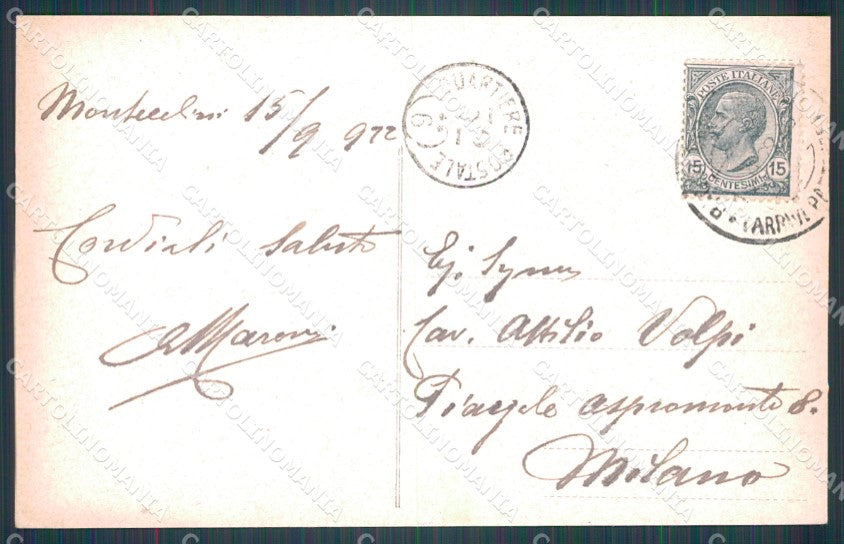 Montecatini 15/9 922
Cordiali saluti
Maroni
QUARTIERE POSTALE (9)
POSTE ITALIANE
15 CENTESIMI 15
Eg. Signor
Cav. Attilio Volpi
Piazzale Aspromonte 8.
Milano
CARTOLINOMANIA